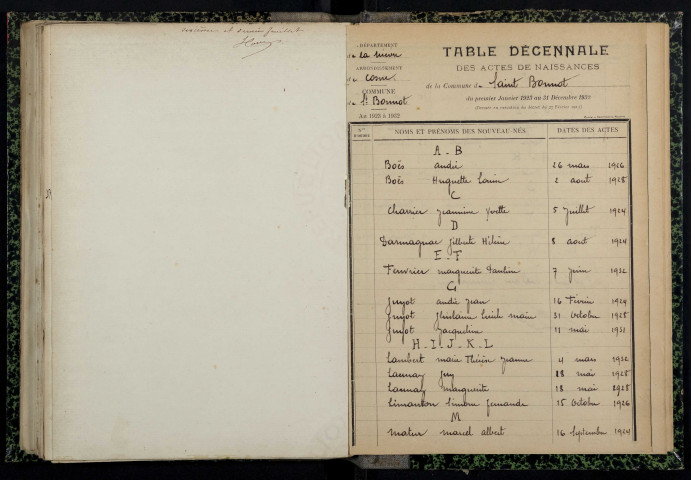 DÉPARTEMENT
de la Nièvre
ARRONDISSEMENT
de Cosne
COMMUNE
de St Bonnot
An 1923 à 1932
TABLE DÉCENNALE
DES ACTES DE NAISSANCES
de la Commune de Saint Bonnot
du premier Janvier 1923 au 31 Décembre 1932
NOMS ET PRÉNOMS DES NOUVEAU-NÉS. DATES DES ACTES
A - B
Boës andré 26 mars 1926
Boës Huguette Louise 2 aout 1928
C
Charrier Jeannine Yvette 5 Juillet 1924
D
Darmagnac Gilberte Hélène 8 aout 1924
E - F
Fevrier marguerite Pauline 7 Juin 1932
G
Guyot andré Jean 16 Février 1924
Guyot Ghislaine Lucile marie 31 Octobre 1928
Guyot Jacqueline 11 mai 1931
H - I - J - K - L
Lambert marie Thérèse Jeanne 4 mars 1932
Launay Guy 28 mai 1928
Launay marguerite 28 mai 1928
Limanton Simone Fernande 15 Octobre 1926
M
mathé marcel albert 16 Septembre 1924